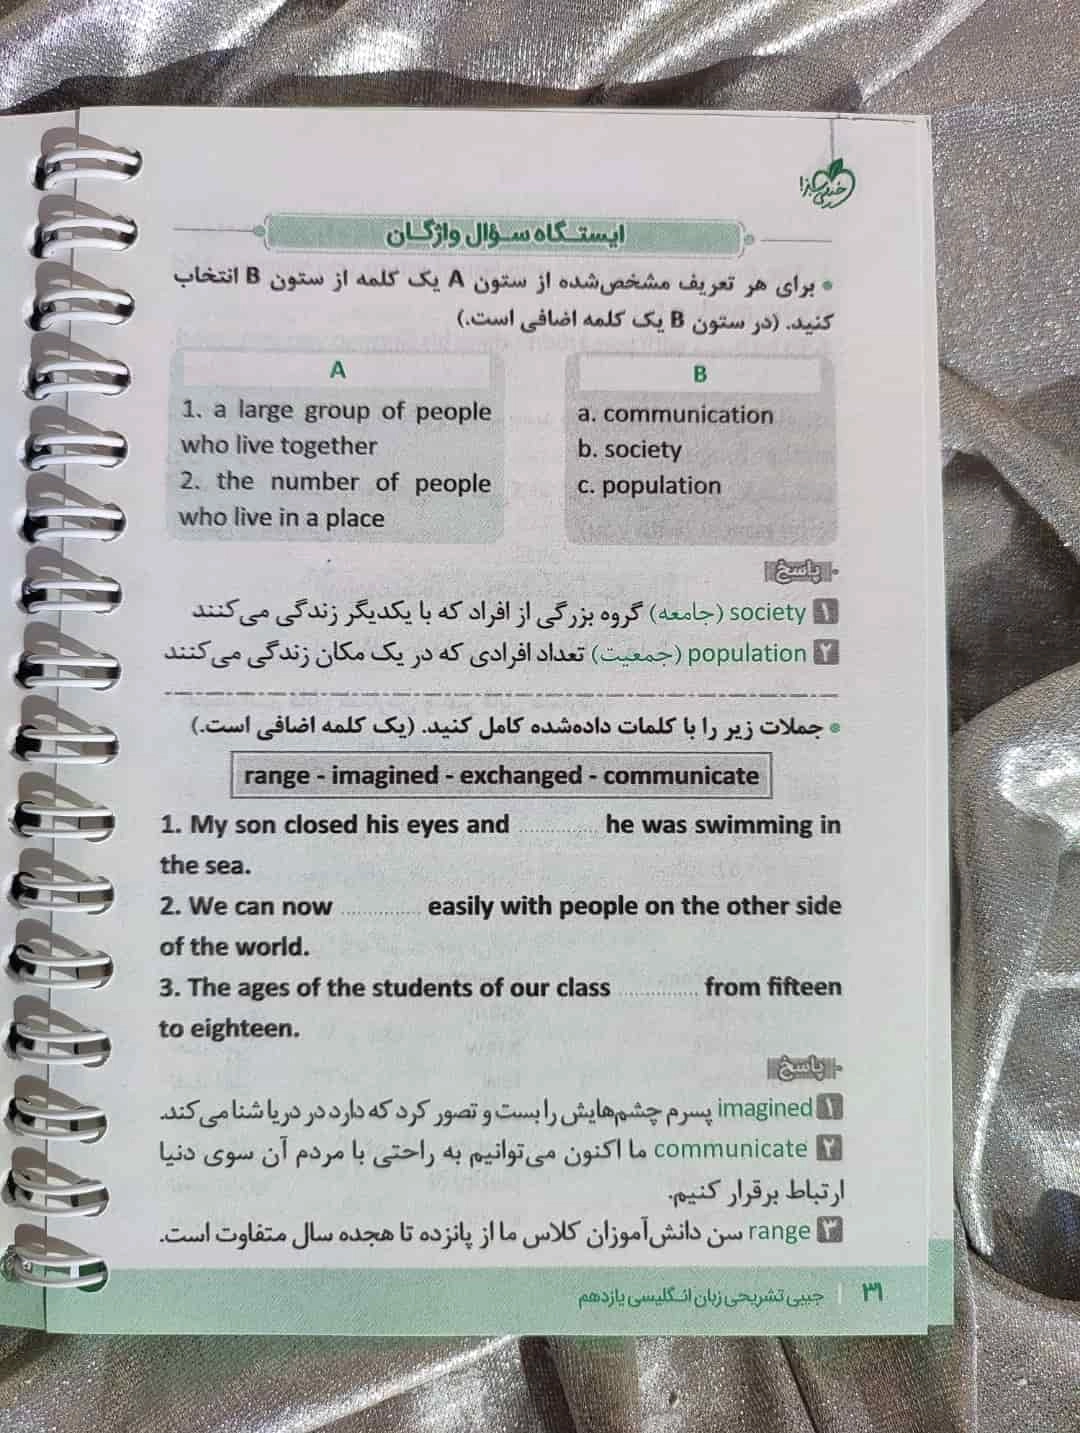 خیلی سبز
ایستگاه سؤال واژگان
• برای هر تعریف مشخص‌شده از ستون A یک کلمه از ستون B انتخاب
کنید. (در ستون B یک کلمه اضافی است.)
A
1. a large group of people
who live together
2. the number of people
who live in a place
B
a. communication
b. society
c. population
پاسخ
۱ society (جامعه) گروه بزرگی از افراد که با یکدیگر زندگی می‌کنند
۲ population (جمعیت) تعداد افرادی که در یک مکان زندگی می‌کنند
• جملات زیر را با کلمات داده‌شده کامل کنید. (یک کلمه اضافی است.)
range - imagined - exchanged - communicate
1. My son closed his eyes and ............. he was swimming in
the sea.
2. We can now ............. easily with people on the other side
of the world.
3. The ages of the students of our class ............. from fifteen
to eighteen.
پاسخ
۱ imagined پسرم چشم‌هایش را بست و تصور کرد که دارد در دریا شنا می‌کند.
۲ communicate ما اکنون می‌توانیم به راحتی با مردم آن سوی دنیا
ارتباط برقرار کنیم.
۳ range سن دانش‌آموزان کلاس ما از پانزده تا هجده سال متفاوت است.
۳۱ | جیبی تشریحی زبان انگلیسی یازدهم